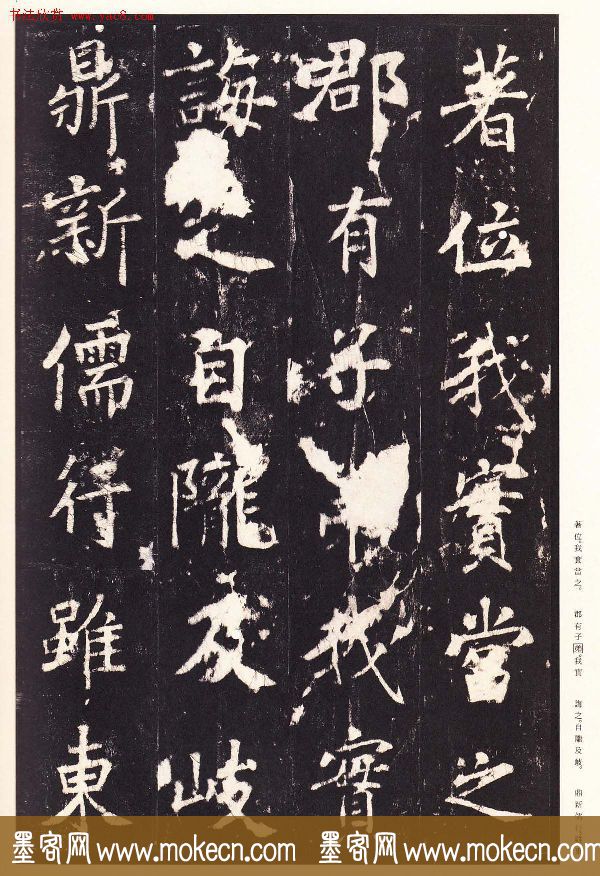 书法欣赏 www.yac8.com
著位我實當之
郡有子弟我實
誨之自隴及岐
鼎新儒行雖東
著位。我實當之。 郡有子弟。我實 誨之。自隴及岐。 鼎新
墨客网 www.mokecn.com 墨客网 www.mokecn.com